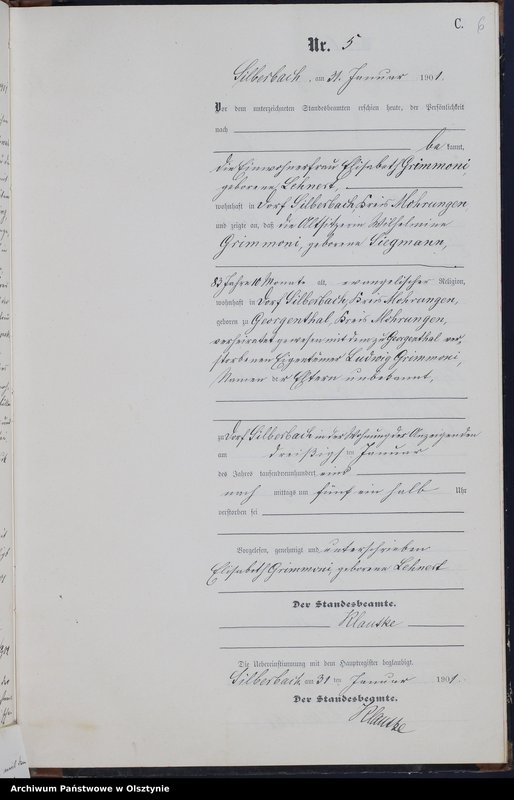 C. 6
Nr. 5
Silberbach, am 31. Januar 1901.
Vor dem unterzeichneten Standesbeamten erschien heute, der Persönlichkeit
nach
be kannt,
die Einwohnerfrau Elisabeth Grimmoni,
geborene Lehnert,
wohnhaft in Dorf Silberbach, Kreis Mohrungen,
und zeigte an, daß die Altsitzerin Wilhelmine
Grimmoni, geborene Siegmann,
83 Jahre 10 Monate alt, evangelischer Religion,
wohnhaft in Dorf Silberbach, Kreis Mohrungen,
geboren zu Georgenthal, Kreis Mohrungen,
verheiratet gewesen mit dem zu Georgenthal ver-
storbenen Eigentümer Ludwig Grimmoni,
Namen der Eltern unbekannt,
zu Dorf Silberbach in der Wohnung der Anzeigenden
am dreißigsten Januar
des Jahres tausendneunhundert eins
nach mittags um fünf ein halb Uhr
verstorben sei
Vorgelesen, genehmigt und unterschrieben
Elisabeth Grimmoni, geborene Lehnert
Der Standesbeamte.
Klautke
Die Uebereinstimmung mit dem Hauptregister beglaubigt.
Silberbach, am 31 ten Januar 1901.
Der Standesbeamte.
Klautke
Archiwum Państwowe w Olsztynie